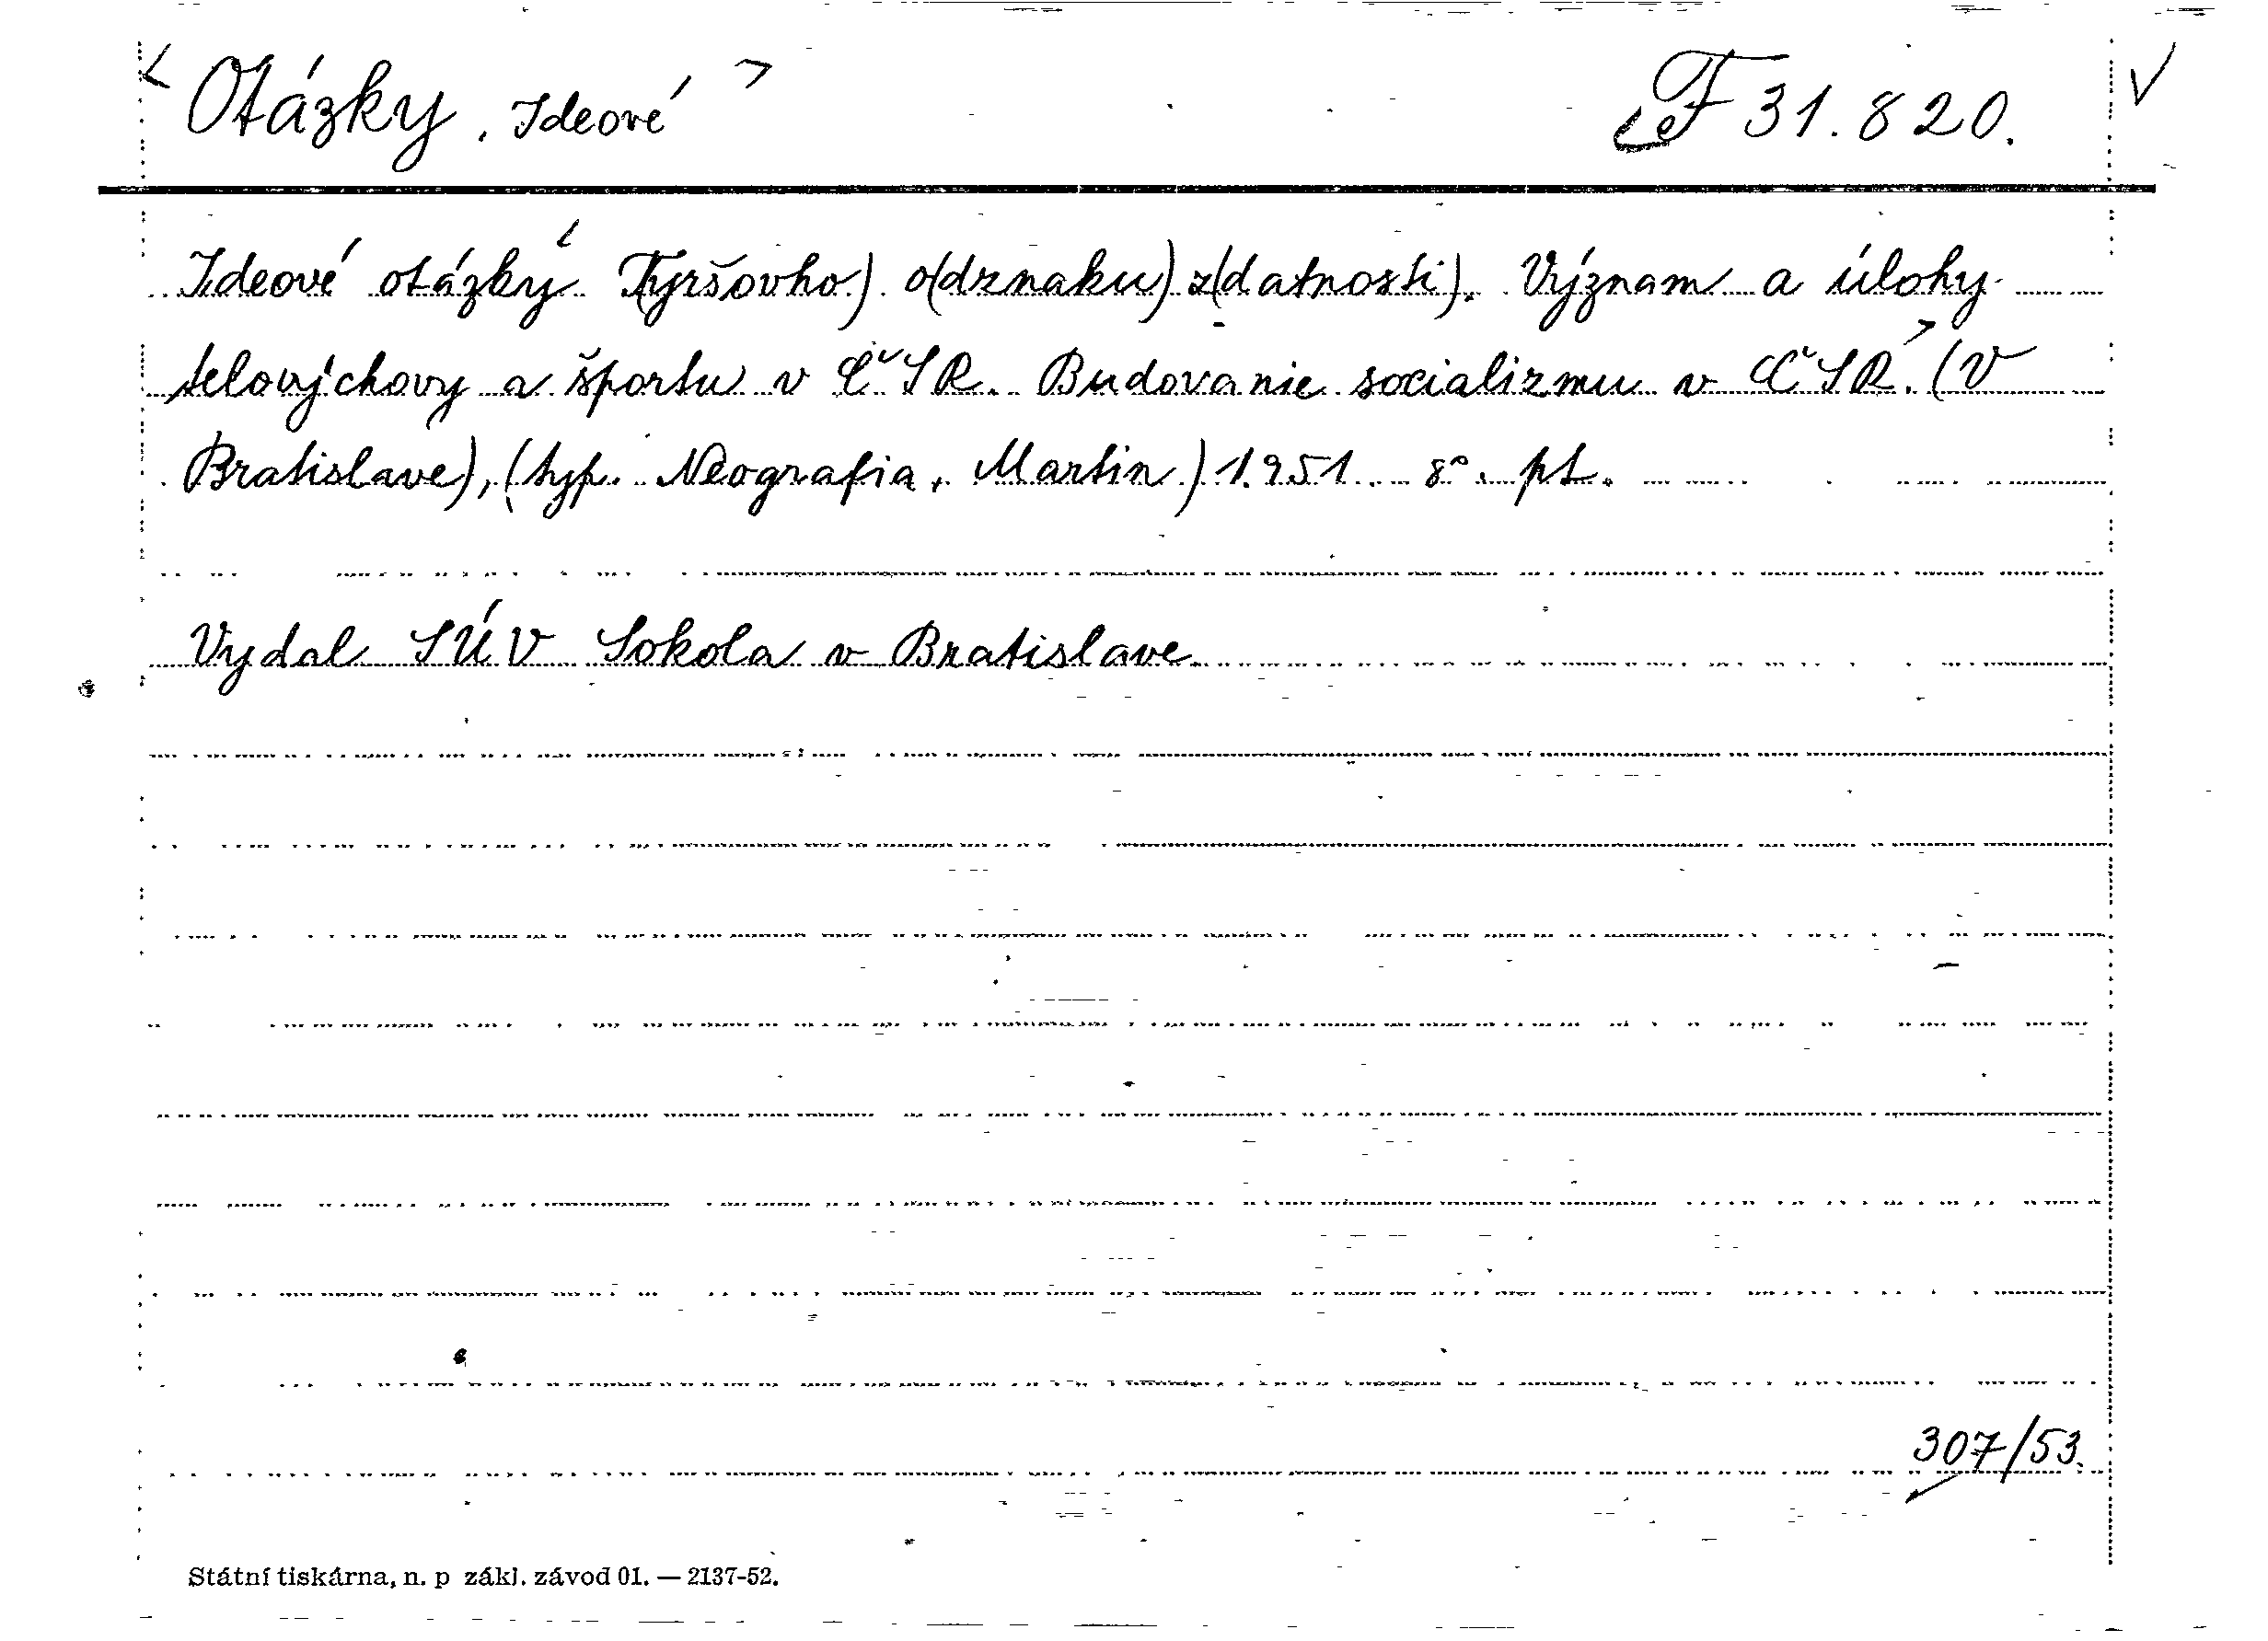 < Otázky, Ideové > F 31.820. V
Ideové otázky < T(yršovho) o(dznaku) z(datnosti). Význam a úlohy
telovýchovy a športu v ČSR. Budovanie socializmu v ČSR. > (V
Bratislave), (typ. Neografia, Martin) 1951. 8°. pt.
Vydal SÚV Sokola v Bratislave
307/53.
Státní tiskárna, n. p zákl. závod 01. — 2137-52.